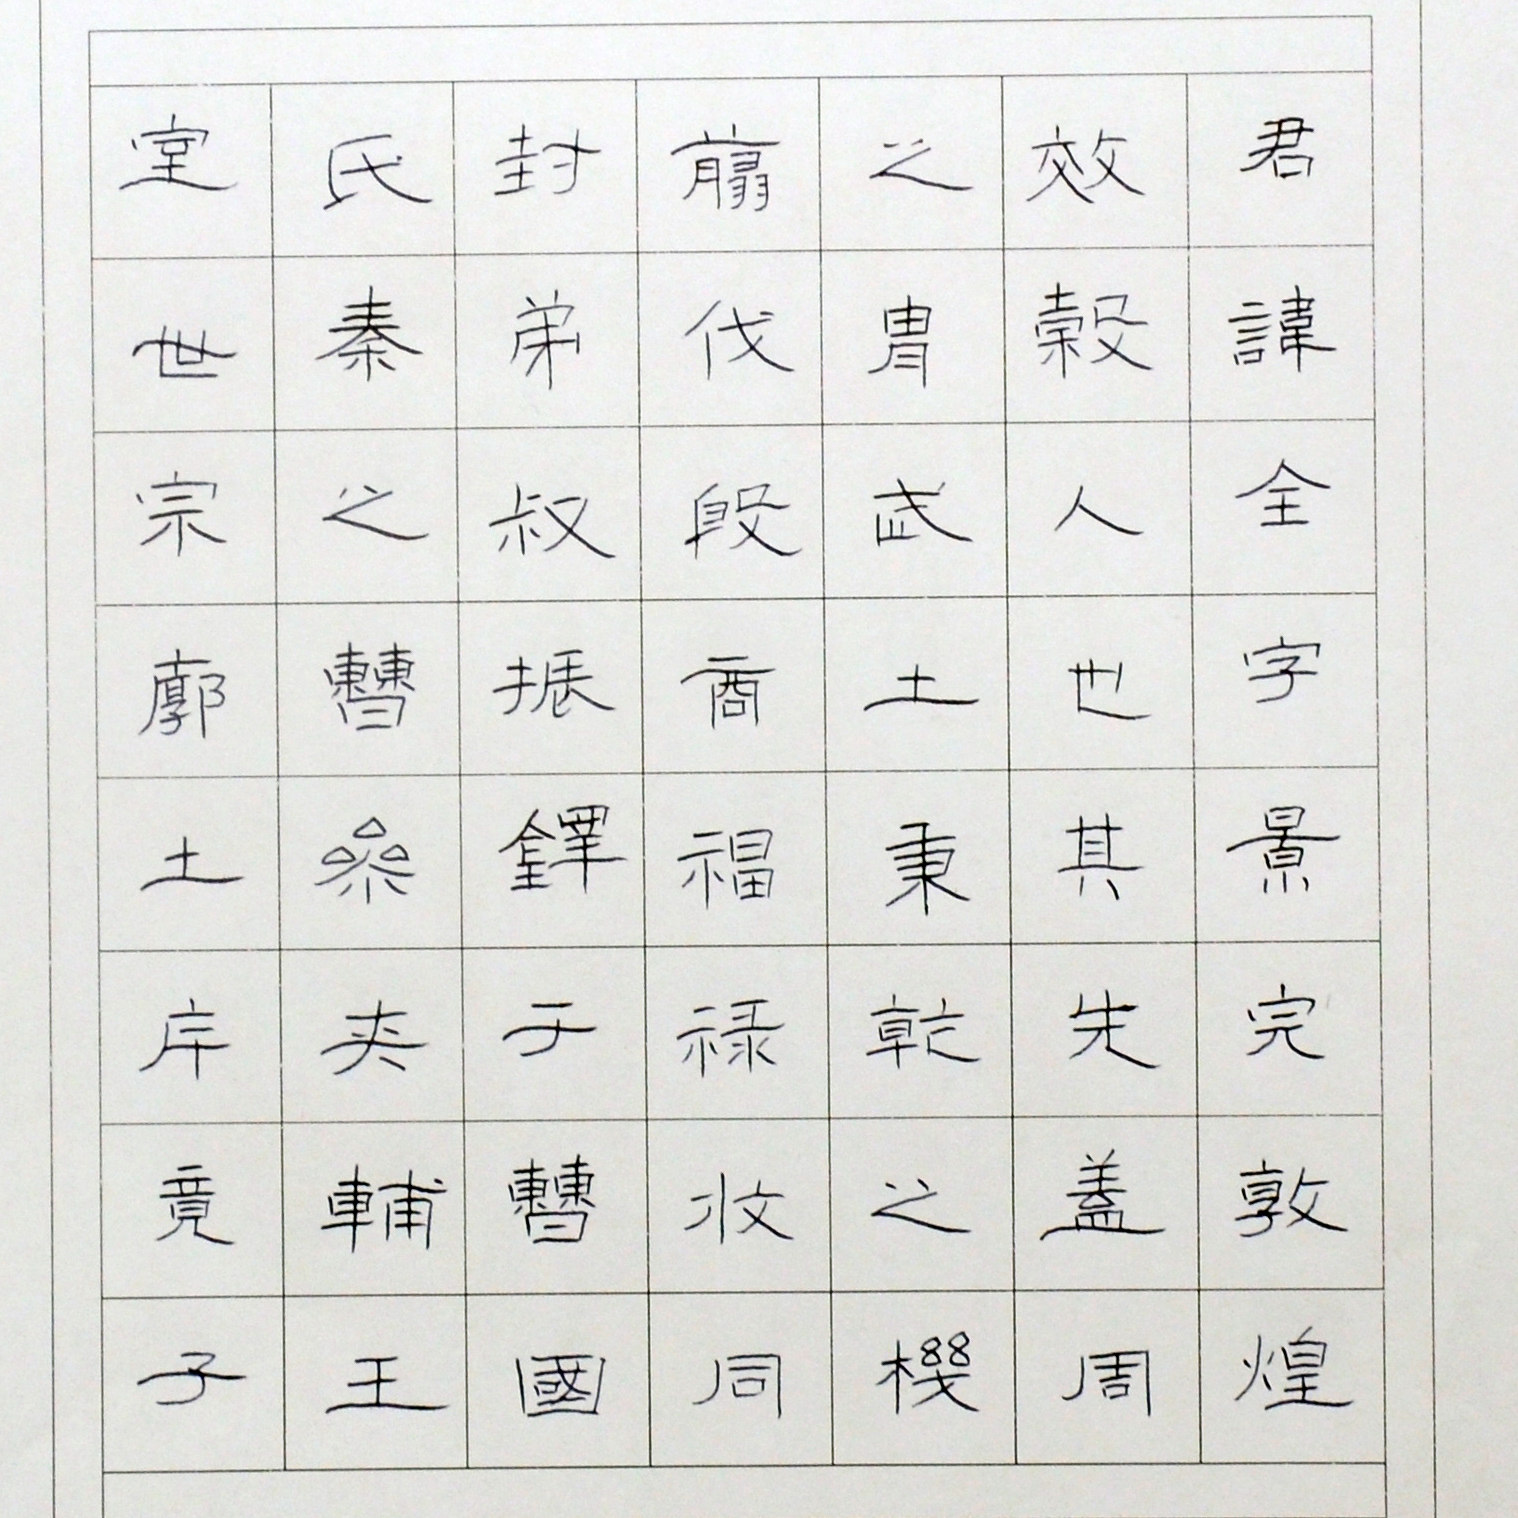 君諱全字景完敦煌
效穀人也其先蓋周
之胄武王秉乾之機
翦伐殷商福祿收同
封弟叔振鐸于曹國
氏秦之曹參夾輔王
室世宗廓土斥竟子